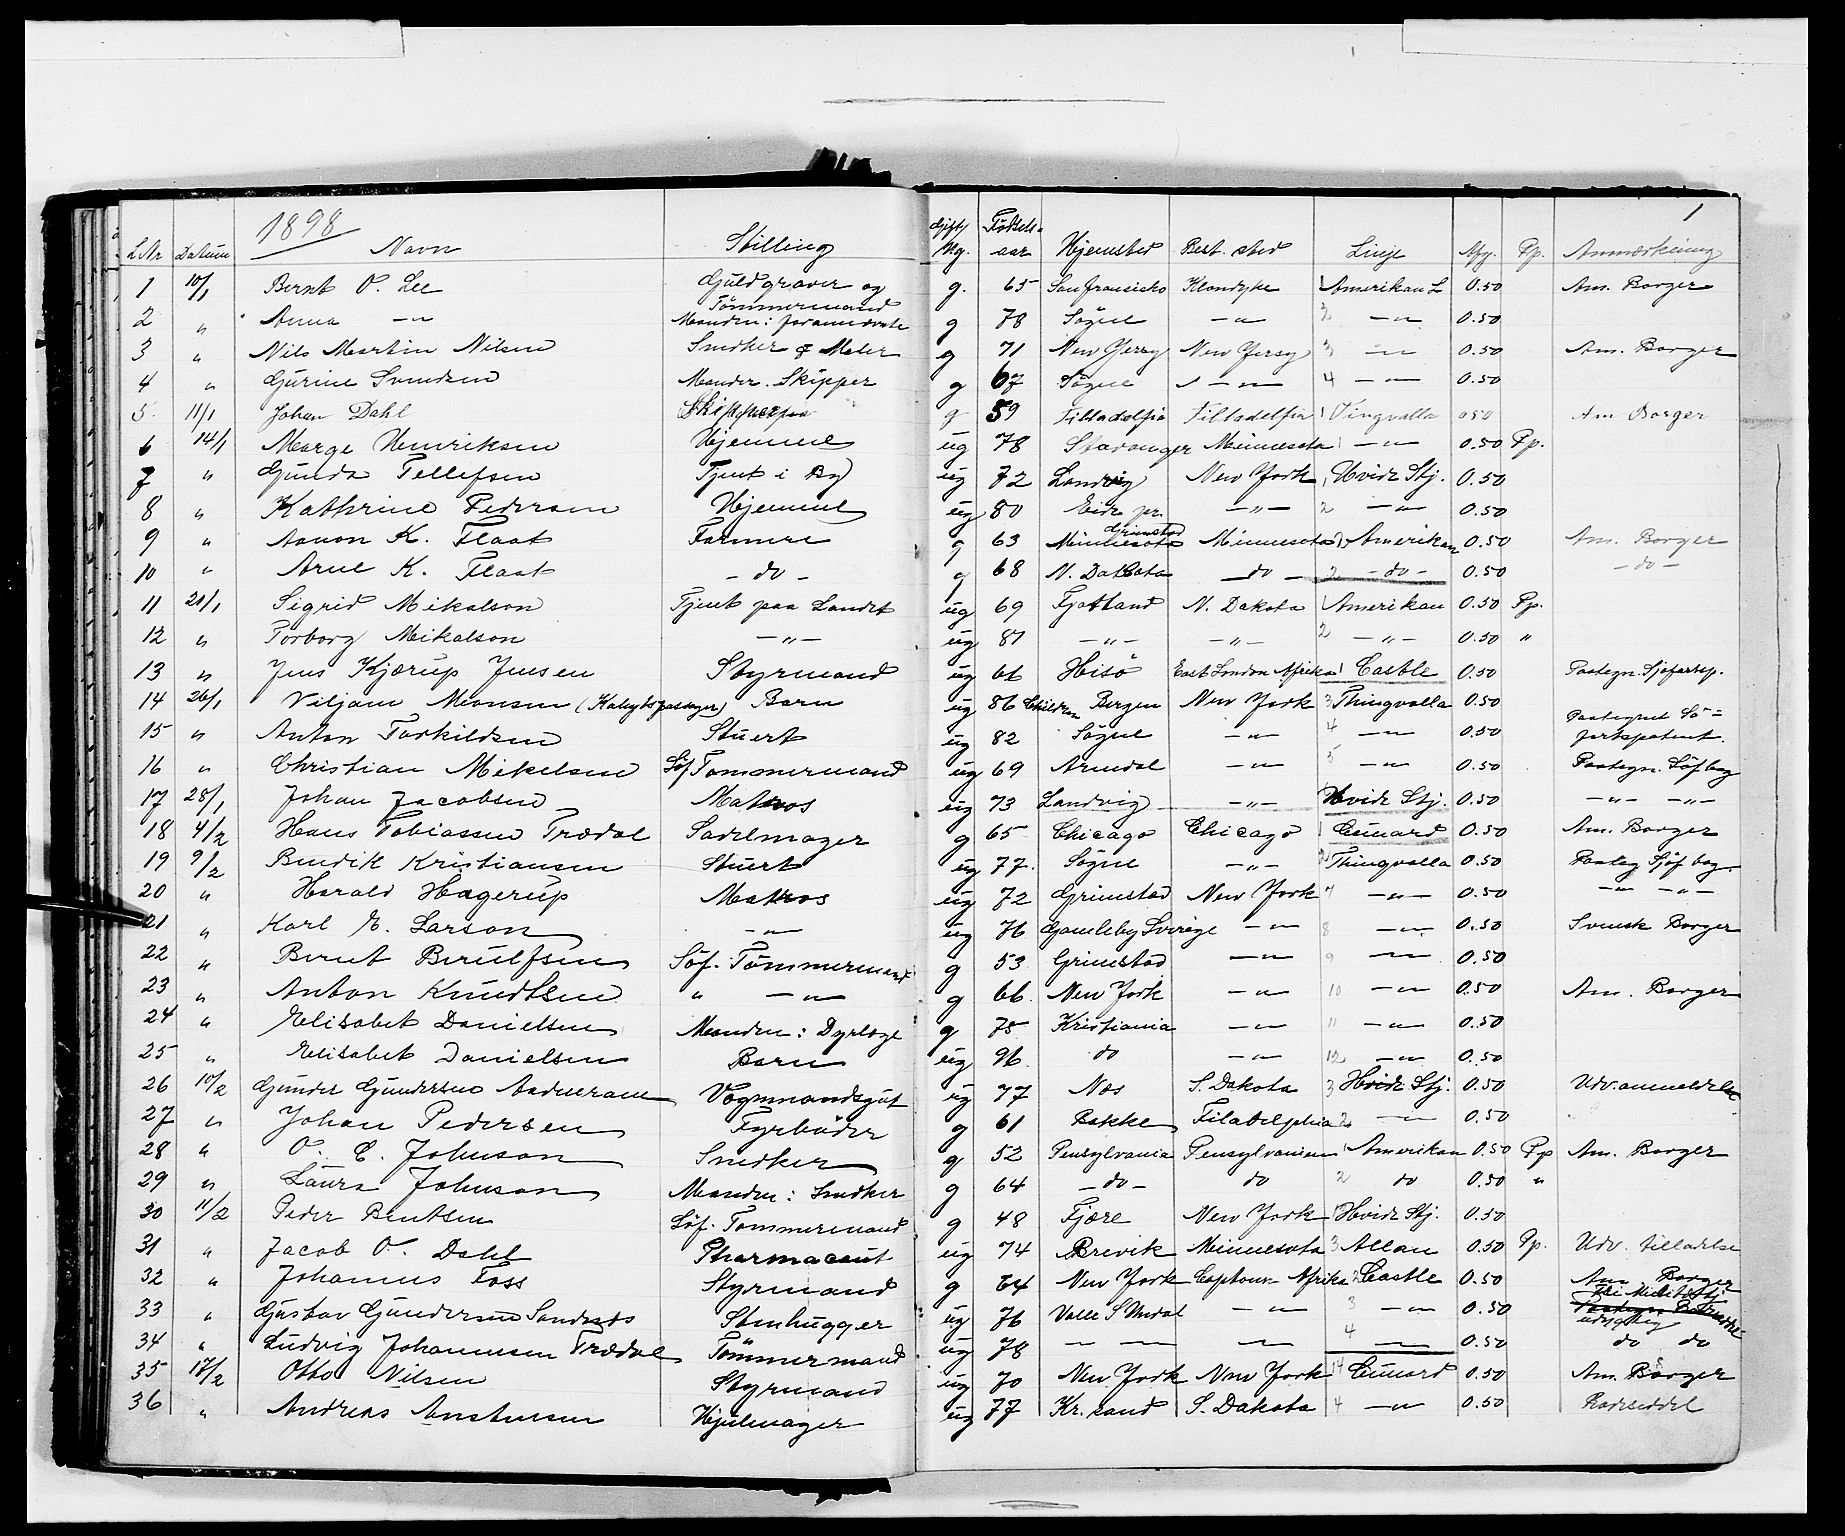 1898 1
L Nr Datum Navn Stilling Gift/Ug. Fødsels-aar Hjemsted Best. sted Linje Afg. Pp. Anmærkning
1 10/1 Bernt O. Lee Guldgraver og Tömmermand g. 65 San Fransisko Klondyke 1 Amerikan L 0.50 Am. Borger
2 " Anna -"- Manden: forannævnte g 78 Sögne -"- 2 -"- 0.50
3 " Nils Martin Nilsen Snedker & Maler g 71 New Yersy New Yersy 3 -"- 0.50 Am. Borger
4 " Gurine Svendsen Manden. Skipper g 67 Sögne -"- 4 -"- 0.50
5 11/1 Johan Dahl g 59 Filladelfia Filladelfia 1 Tingvalla 0.50 Am Borger
6 14/1 Marge Henriksen Hjemme ug 78 Stavanger Minnesota 1 -"- 0.50 Pp.
7 " Gunda Tellefsen Tjent i By ug 72 Landvig New York 1 Hvide Stj. 0.50
8 " Kathrine Pedersen Hjemme ug 80 Eide pr. Grimstad -"- 2 -"- 0.50
9 " Aanon K. Flaat Farmere g 63 Minnesota Minnesota 1 Amerikan 0.50 Am. Borger
10 " Arne K. Flaat - do - g 68 N. Dakota - do - 2 - do - 0.50 - do -
11 21/1 Sigrid Mikalson Tjent paa Landet ug 69 Fjotland N. Dakota 1 Amerikan 0.50 Pp.
12 " Torborg Mikalson -"- ug 81 -"- -"- 2 -"- 0.50 "
13 " Jens Kjærup Jensen Styrmand ug 66 Hisö East London Afrika 1 Castle 0.50 Paategn. Sjøfartsp.
14 26/1 Viljam Monsen (Kahytspassager) Barn ug 86 Children Bergen New York 3 Thingvalla 0.50
15 " Anton Torkildsen Stuert ug 82 Sögne -"- 4 -"- 0.50 Paategnet Sö-fartspatent.
16 " Christian Mikelsen Söf Tømmermand ug 69 Arendal -"- 5 -"- 0.50 Paategn. Söfbog
17 28/1 Johan Jacobsen Matros ug 73 Landvig -"- Hvide Stj. 0.50 -"- -"-
18 4/2 Hans Tobiassen Trædal Sadelmager g 65 Chicago Chicago 1 Cunard 0.50 Am. Borger
19 9/2 Bendik Kristiansen Stuert ug 77. Sögne -"- Thingvalla 0.50 Paateg Sjöf bog.
20 " Harald Hagerup Matros ug 72 Grimstad New York 7 -"- 0.50 -"- -"-
21 " Karl E. Larson -"- ug 76 Gamleby Sverige -"- 8 -"- 0.50 Svensk Borger
22 " Bernt Berulfsen Söf. Tömmermand g 53 Grimstad -"- 9 -"- 0.50
23 " Anton Knudtsen " -"- g 66 New York -"- 10 -"- 0.50 Am. Borger
24 " Elisabet Danielsen Manden: Dyrlæge g 75 Kristiania -"- 11 -"- 0.50
25 " Elisabet Danielsen Barn ug 96 do -"- 12 -"- 0.50
26 10/2 Gunder Gundersen Aadneram Vognmandsgut ug 77 Næs S. Dakota 3 Hvide Stj. 0.50 Udv.anmeldelse
27 " Johan Pedersen Fyrböder g 61 Bakke Filadelphia 2 -"- 0.50
28 " O. C. Johnson Snedker g 52 Pensylvania Pensylvanien 1 Amerikan 0.50 Pp Am. Borger
29 " Laura Johnson Manden: Snedker g 64 - do - do 2 do 0.50 "
30 11/2 Peder Bentsen Söf. Tømmermand g 48 Fjære New York 1 Hvide Stj. 0.50
31 " Jacob O. Dahl Pharmaceut ug 74 Brevik Minnesota 3 Allan 0.50 Pp. Udv. tilladelse
32 " Johannes Foss Styrmand g 64 New York Captown Afrika 2 Castle 0.50 Am. Borger
33 " Gustav Gundersen Sandnæs Stenhugger ug 76 Valle S Undal -"- 3 -"- 0.50 udygtig
34 " Ludvig Johannesen Trædal Tömmermand ug 78 -"- -"- 4 -"- 0.50 do do
35 17/2 Otto Nilsen Styrmand ug 70 New York New York 14 Cunard 0.50 Am. Borger
36 " Andreas Anstensen Hjulmager ug 77 Kr. sand S. Dakota 4 -"- 0.50 Rodeseddel